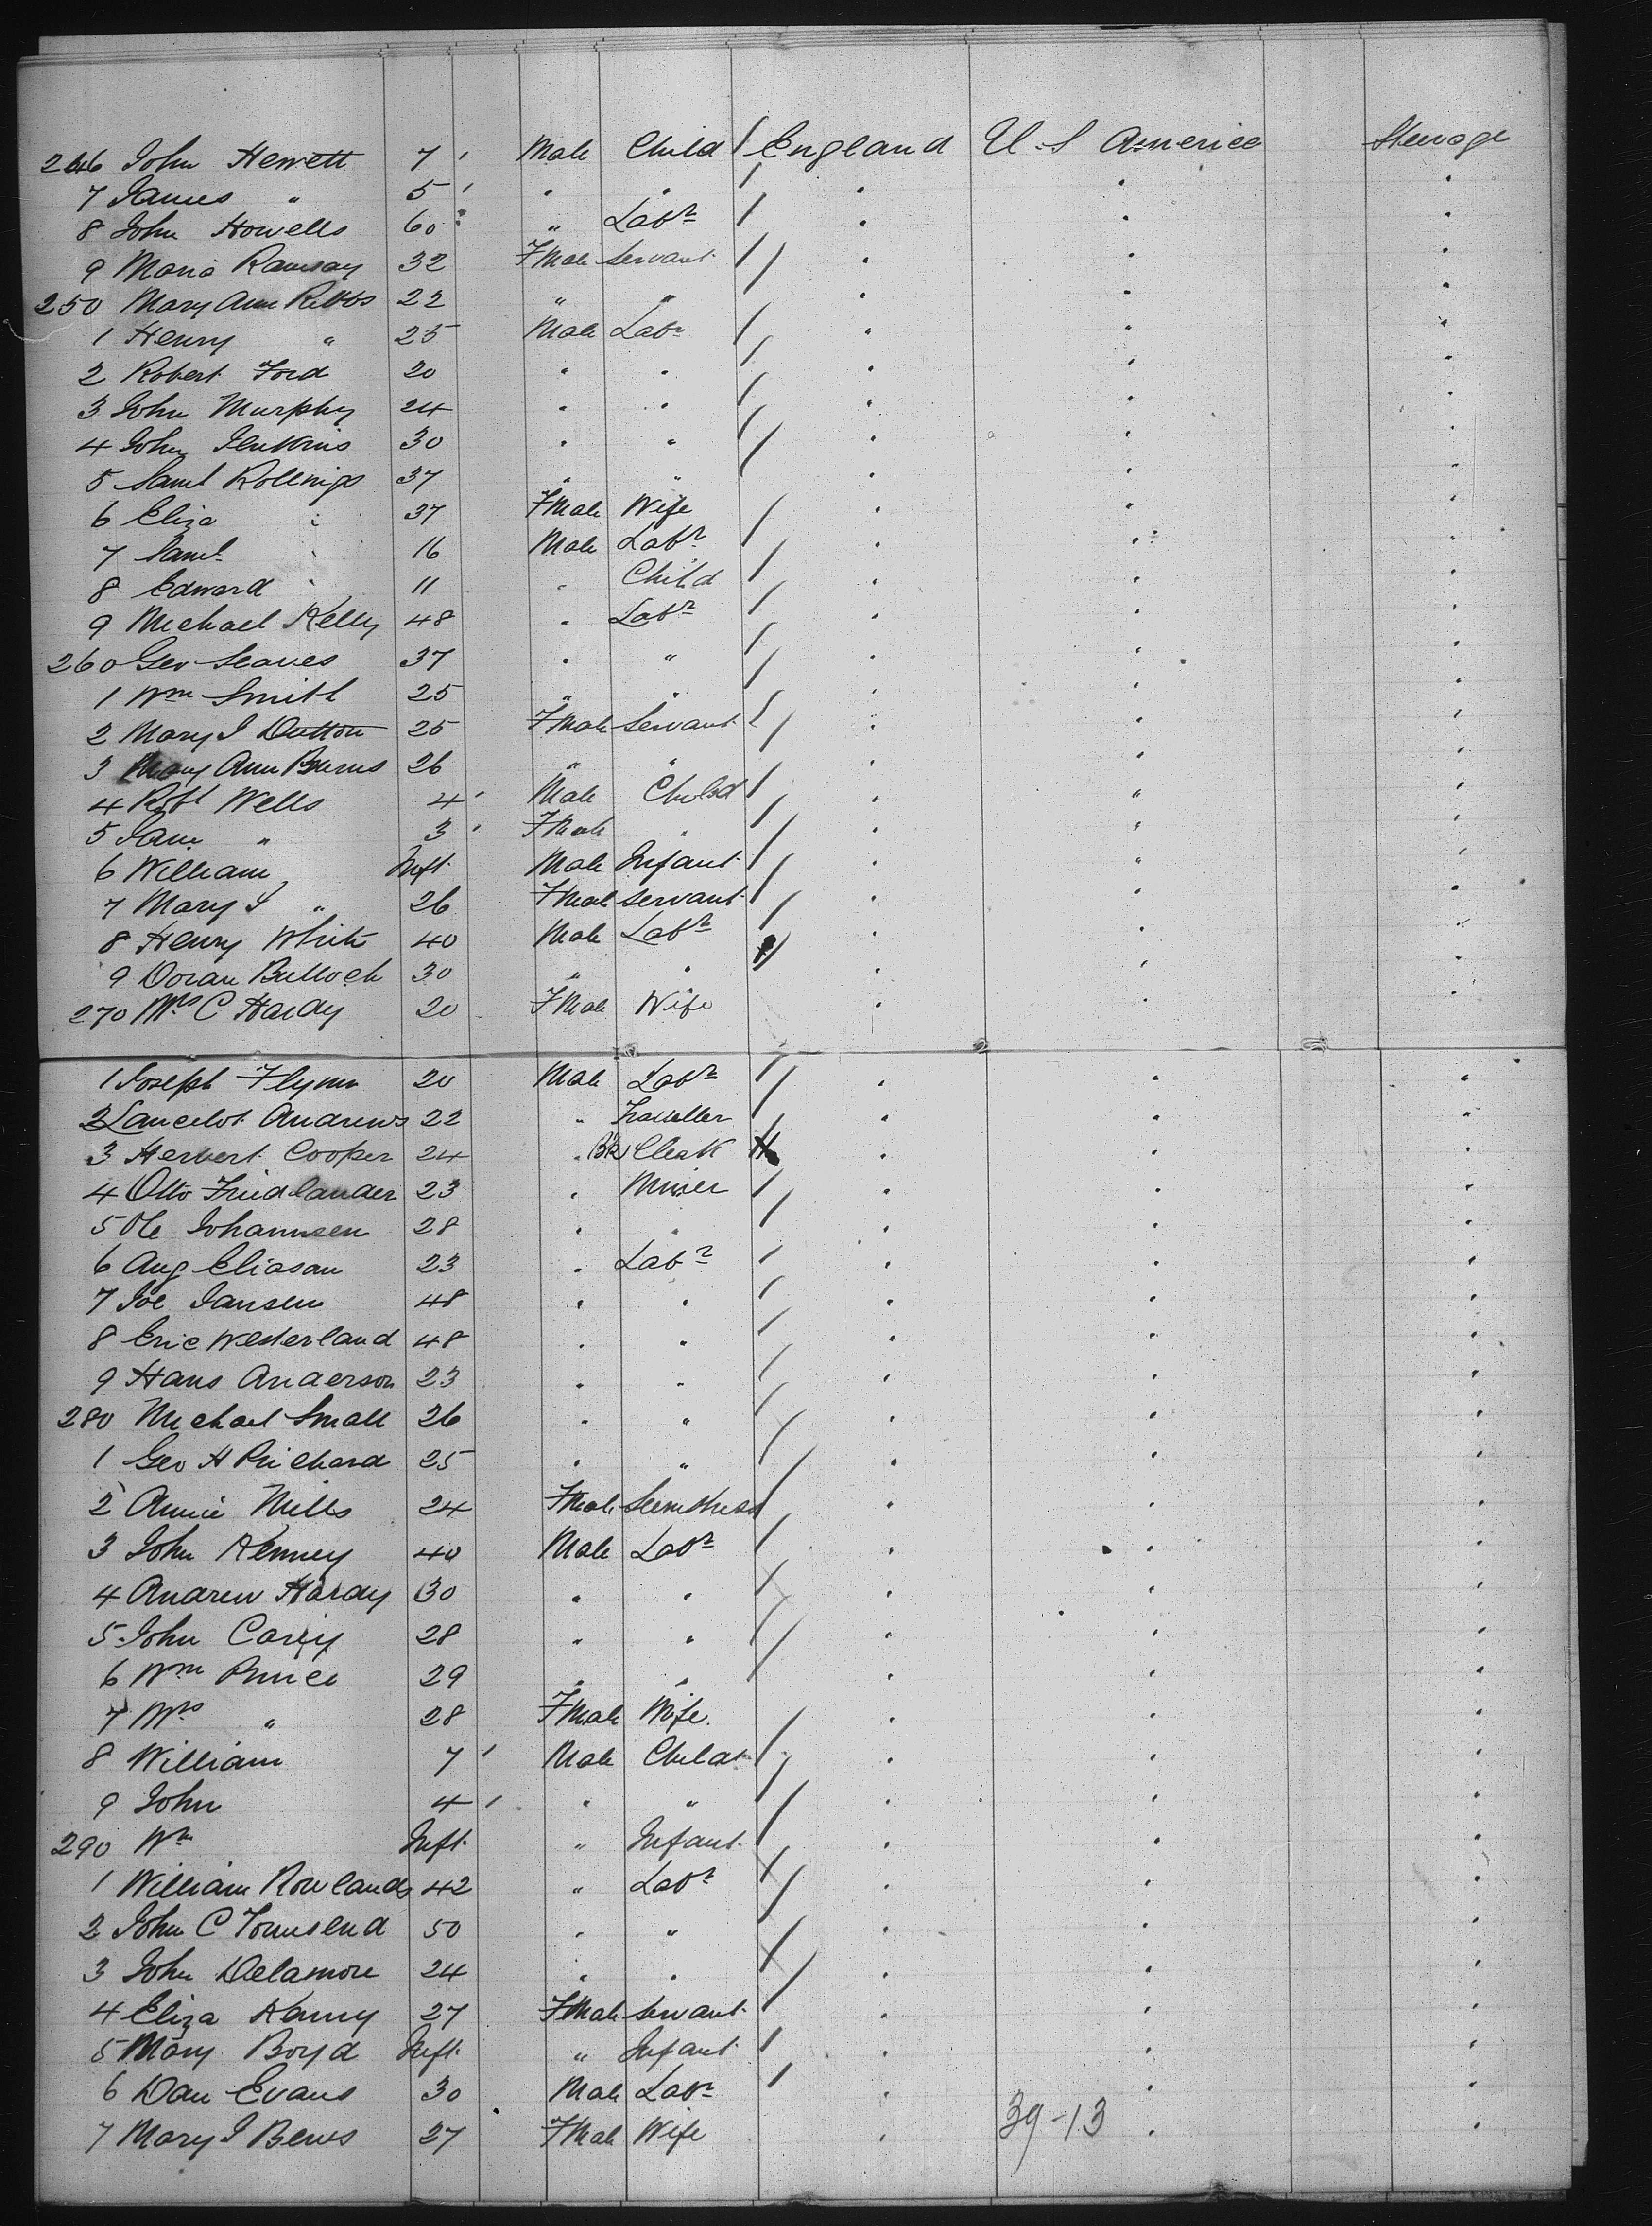 246 John Hewett 7 ' Male Child / England U.S America Steerage
7 James " 5 ' " " / " " "
8 John Howells 60 " Labr / " " "
9 Maria Ramsay 32 FMale Servant / " " "
250 Mary Ann Ribbs 22 " " / " " "
1 Henry " 25 Male Labr / " " "
2 Robert Ford 20 " " / " " "
3 John Murphy 24 " " / " " "
4 John Jenkins 30 " " / " " "
5 Saml Rollings 37 " " / " " "
6 Eliza " 37 FMale Wife " " "
7 Saml " 16 Male Labr / " " "
8 Edward " 11 " Child / " " "
9 Michael Kelly 48 " Labr / " " "
260 Geo Seaves 37 " " / " " "
1 Wm Smith 25 " " / " " "
2 Mary J Dutton 25 FMale Servant / " " "
3 Mary Ann Burns 26 " " / " " "
4 Robt Wells 4 ' Male Child / " " "
5 Jane " 3 ' FMale " / " " "
6 William Inft Male Infant / " " "
7 Mary J " 26 FMale Servant / " " "
8 Henry White 40 Male Labr / " " "
9 Doran Bulloch 30 " " / " " "
270 Mrs C Hardy 20 FMale Wife " " "
1 Joseph Flynn 20 Male Labr / " " "
2 Lancelot Andrews 22 " Traveller / " " "
3 Herbert Cooper 24 " Bk Clerk " " "
4 Otto Fridlander 23 " Miner / " " "
5 Ole Johannsen 28 " " / " " "
6 Aug Eliasan 23 " Labr / " " "
7 Joe Jansen 48 " " / " " "
8 Eric Westerland 48 " " / " " "
9 Hans Anderson 23 " " / " " "
280 Michael Small 26 " " / " " "
1 Geo H Prichard 25 " " / " " "
2 Annie Mills 24 FMale Seemstress / " " "
3 John Kenney 40 Male Labr / " " "
4 Andrew Hardy 30 " " / " " "
5 John Carey 28 " " / " " "
6 Wm Prince 29 " " / " " "
7 Mrs " 28 FMale Wife " " "
8 William 7 ' Male Child / " " "
9 John 4 ' " " / " " "
290 Wm Inft " Infant / " " "
1 William Rowlands 42 " Labr / " " "
2 John C Townsend 50 " " / " " "
3 John Delamore 24 " " / " " "
4 Eliza Kenny 27 FMale Servant / " " "
5 Mary Boyd Inft " Infant / " " "
6 Dan Evans 30 Male Labr / " " "
7 Mary J Bews 27 FMale Wife " 39-13 " "